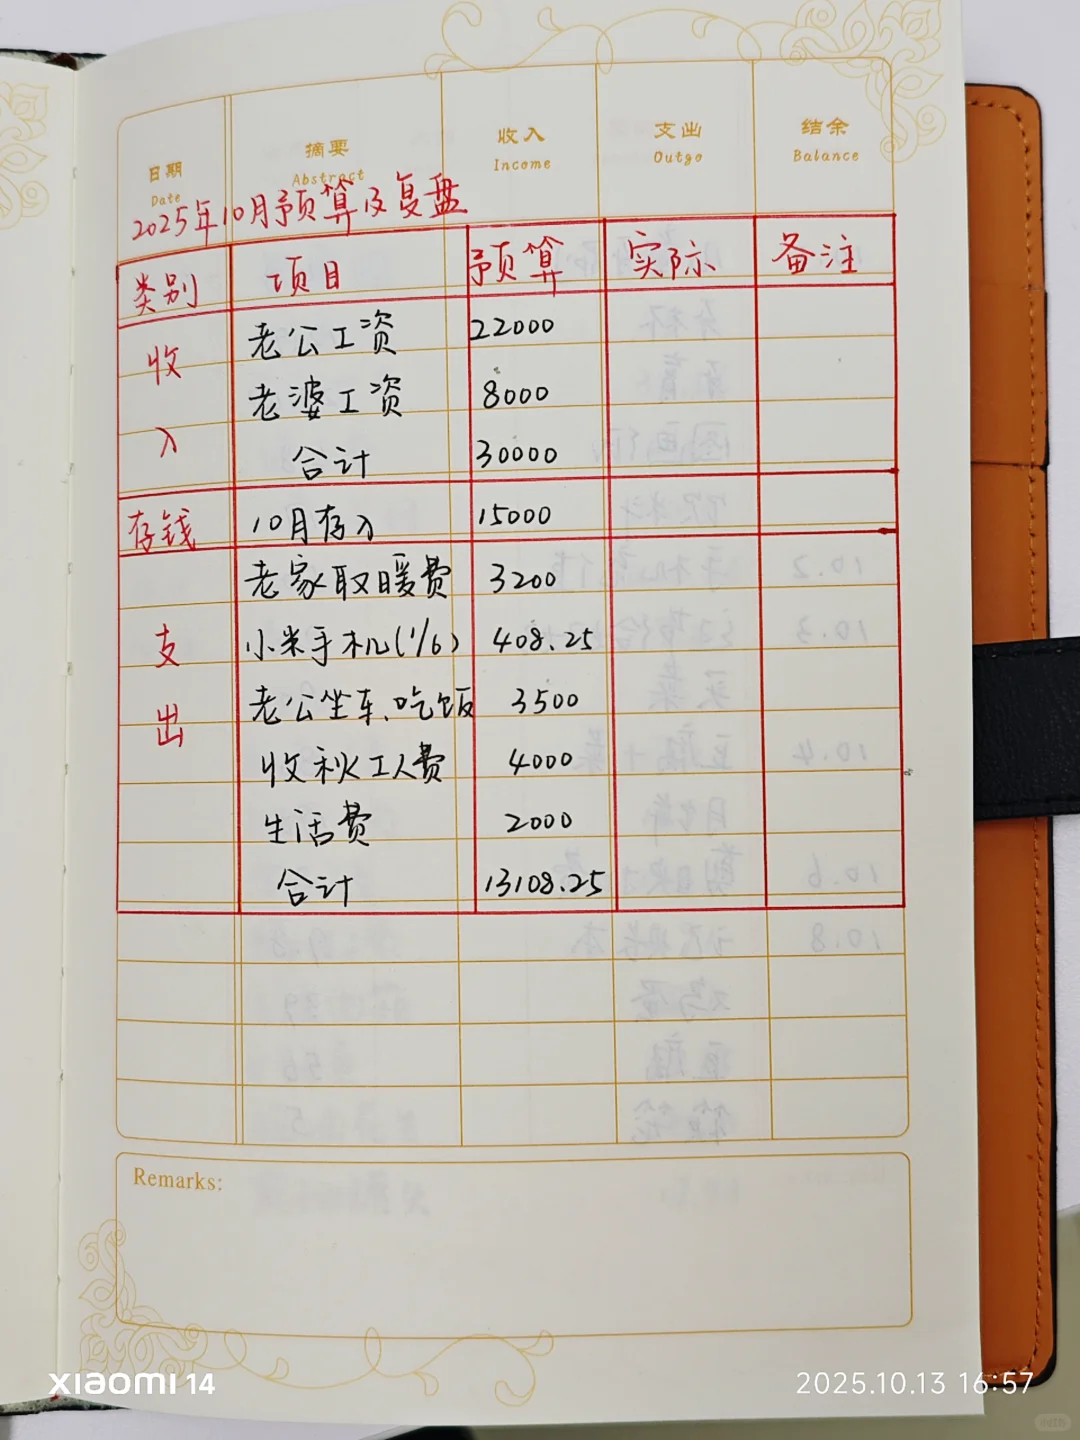 日期 摘要 收入 支出 结余
Date Abstract Income Outgo Balance
2025年10月预算及复盘
类别 项目 预算 实际 备注
收入 老公工资 22000
老婆工资 8000
合计 30000
存钱 10月存入 15000
支出 老家取暖费 3200
小米手机(1/6) 408.25
老公坐车、吃饭 3500
收秋工人费 4000
生活费 2000
合计 13108.25
Remarks:
xiaomi 14
2025.10.13 16:57